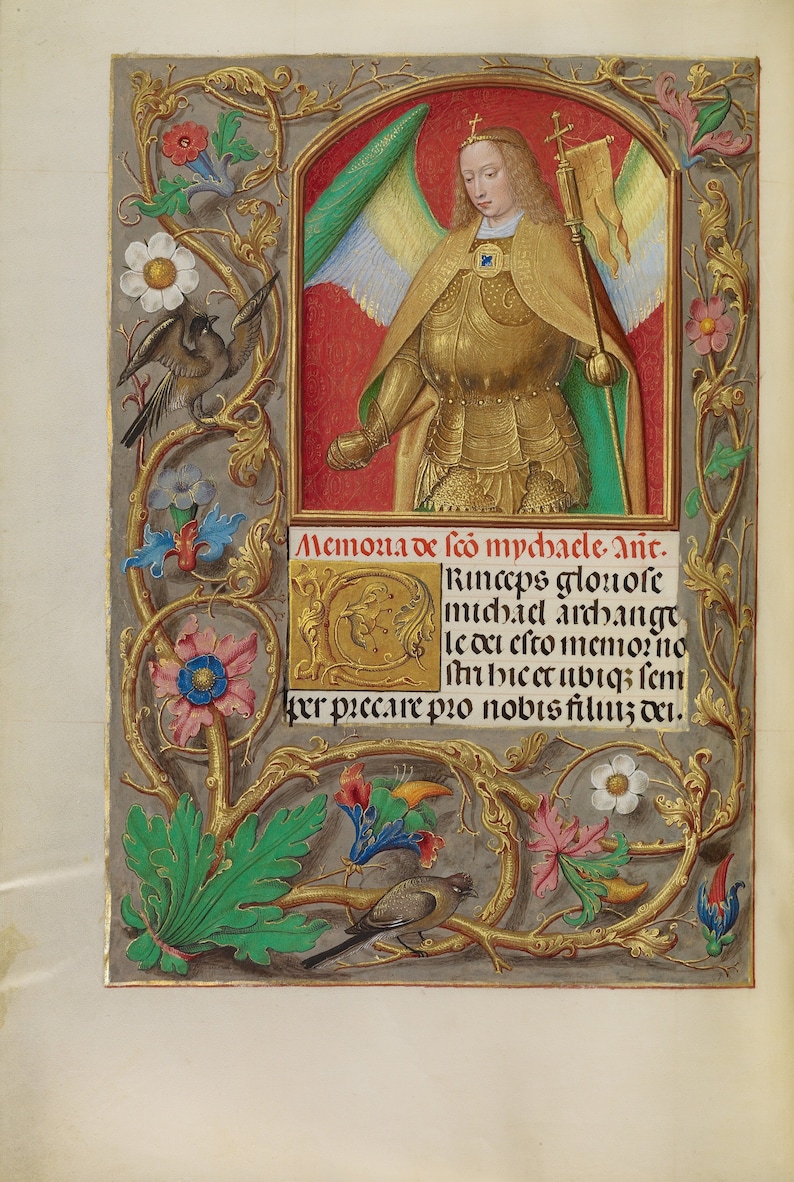 Memoria de sc̄o mychaele. Añt.
PRinceps gloriose
michael archange
le dei esto memor no
stri hic et ubiqꝫ sem
per precare pro nobis filiuꝫ dei.